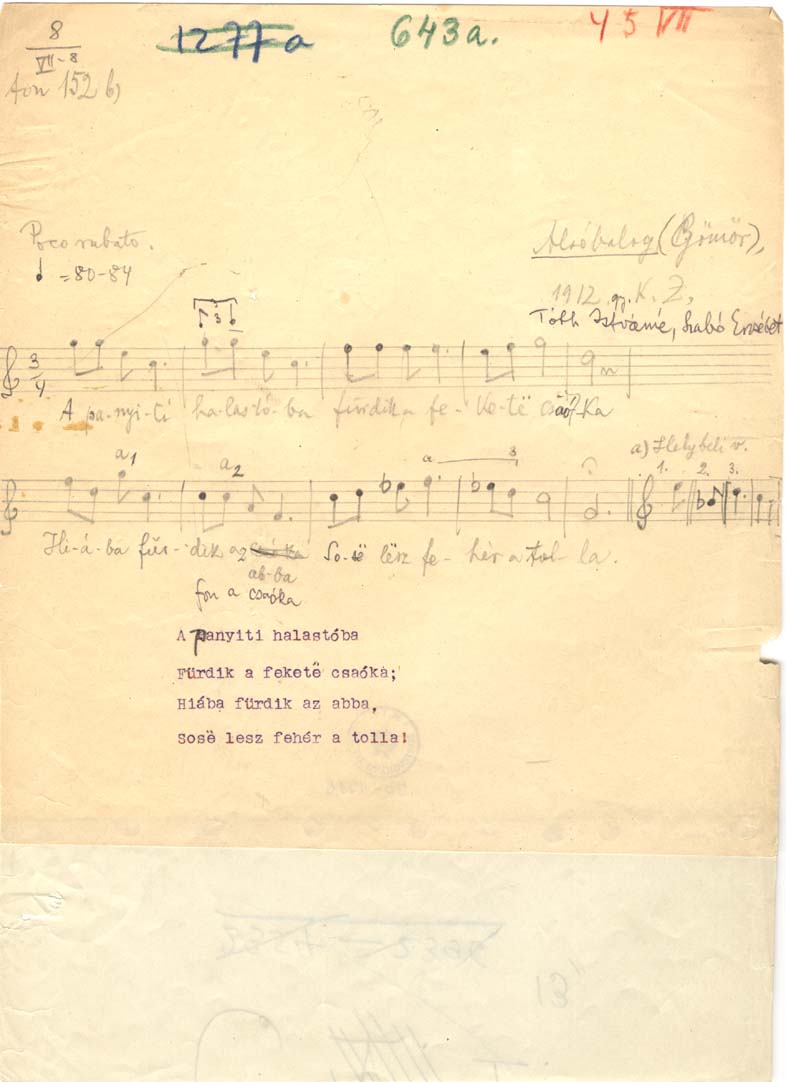 8
VII-8
1277a
643a.
45 VII
Fon 152 b)
Poco rubato.
Alsóbalog (Gömör),
♩ = 80-84
1912 gy. K. Z.
Tóth Istvánné, Szabó Erzsébet
3
3/4
A pa-nyi-ti ha-las-tó-ba fürdik a fe-ke-të csaó-ka
a1 a2 a 3 a) Helybeli v.
1. 2. 3.
Hi-á-ba für-dik a2 Soʹ-së lësz fe-hér a tol-la.
ab-ba
fon a csaóka
A panyiti halastóba
Fürdik a feketë csaóka;
Hiába fürdik az abba,
Sosë lesz fehér a tolla!